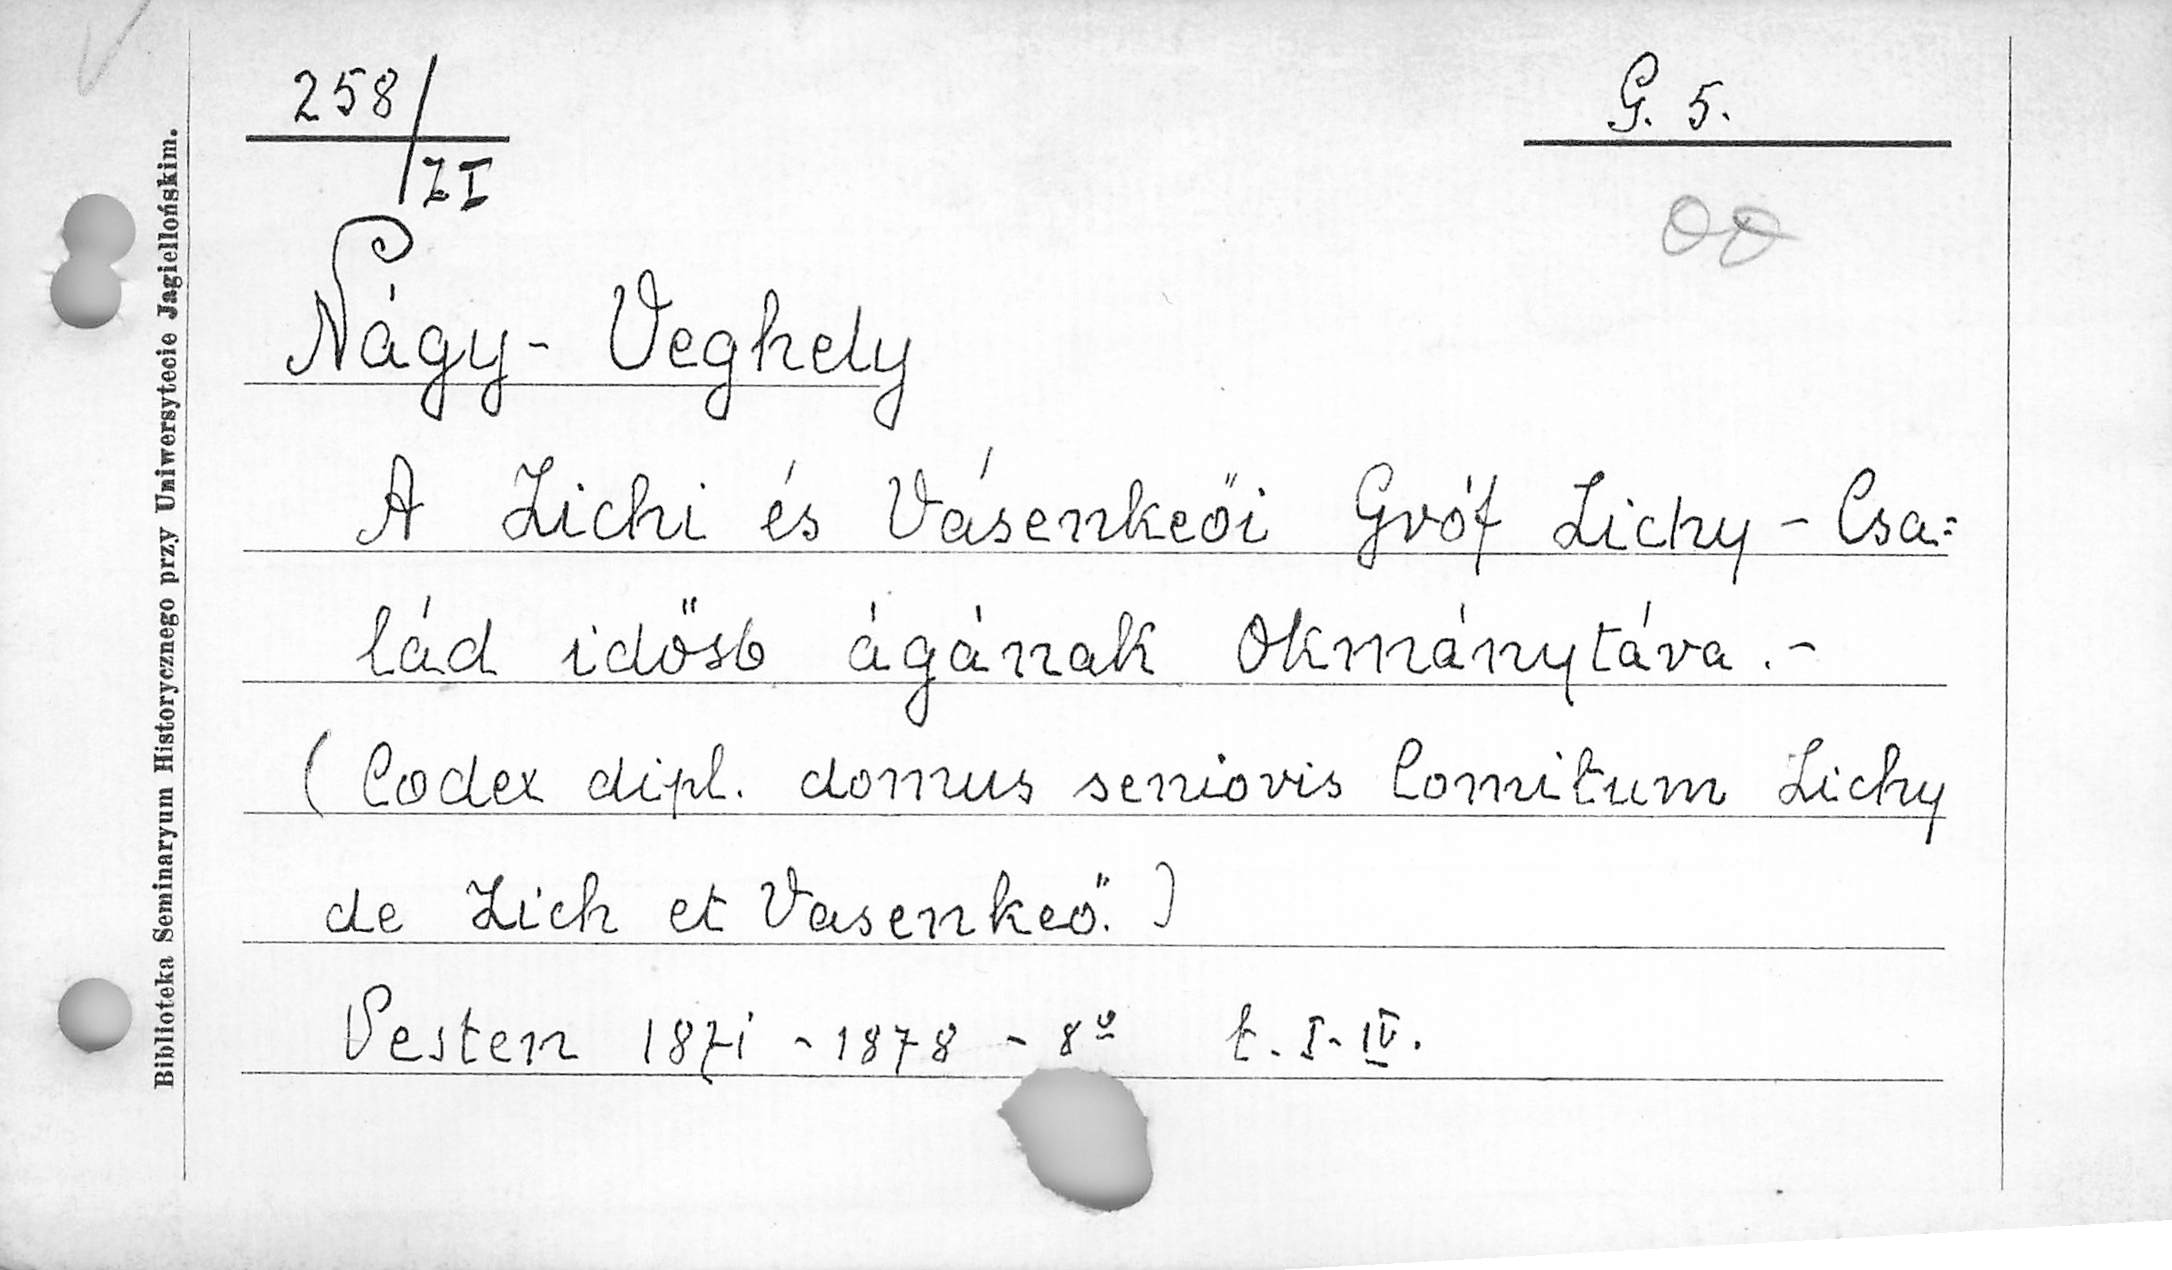 258/ZI
G. 5.
Nágy - Veghely
A Zichi és Vásenkeői Gróf Zichy - Csa=
lád idősb ágának Okmánytára . -
( Codex dipl. domus senioris Comitum Zichy
de Zich et Vasenkeő. )
Pesten 1871 - 1878 - 8º t. I - IV.
Biblioteka Seminaryum Historycznego przy Uniwersytecie Jagiellońskim.